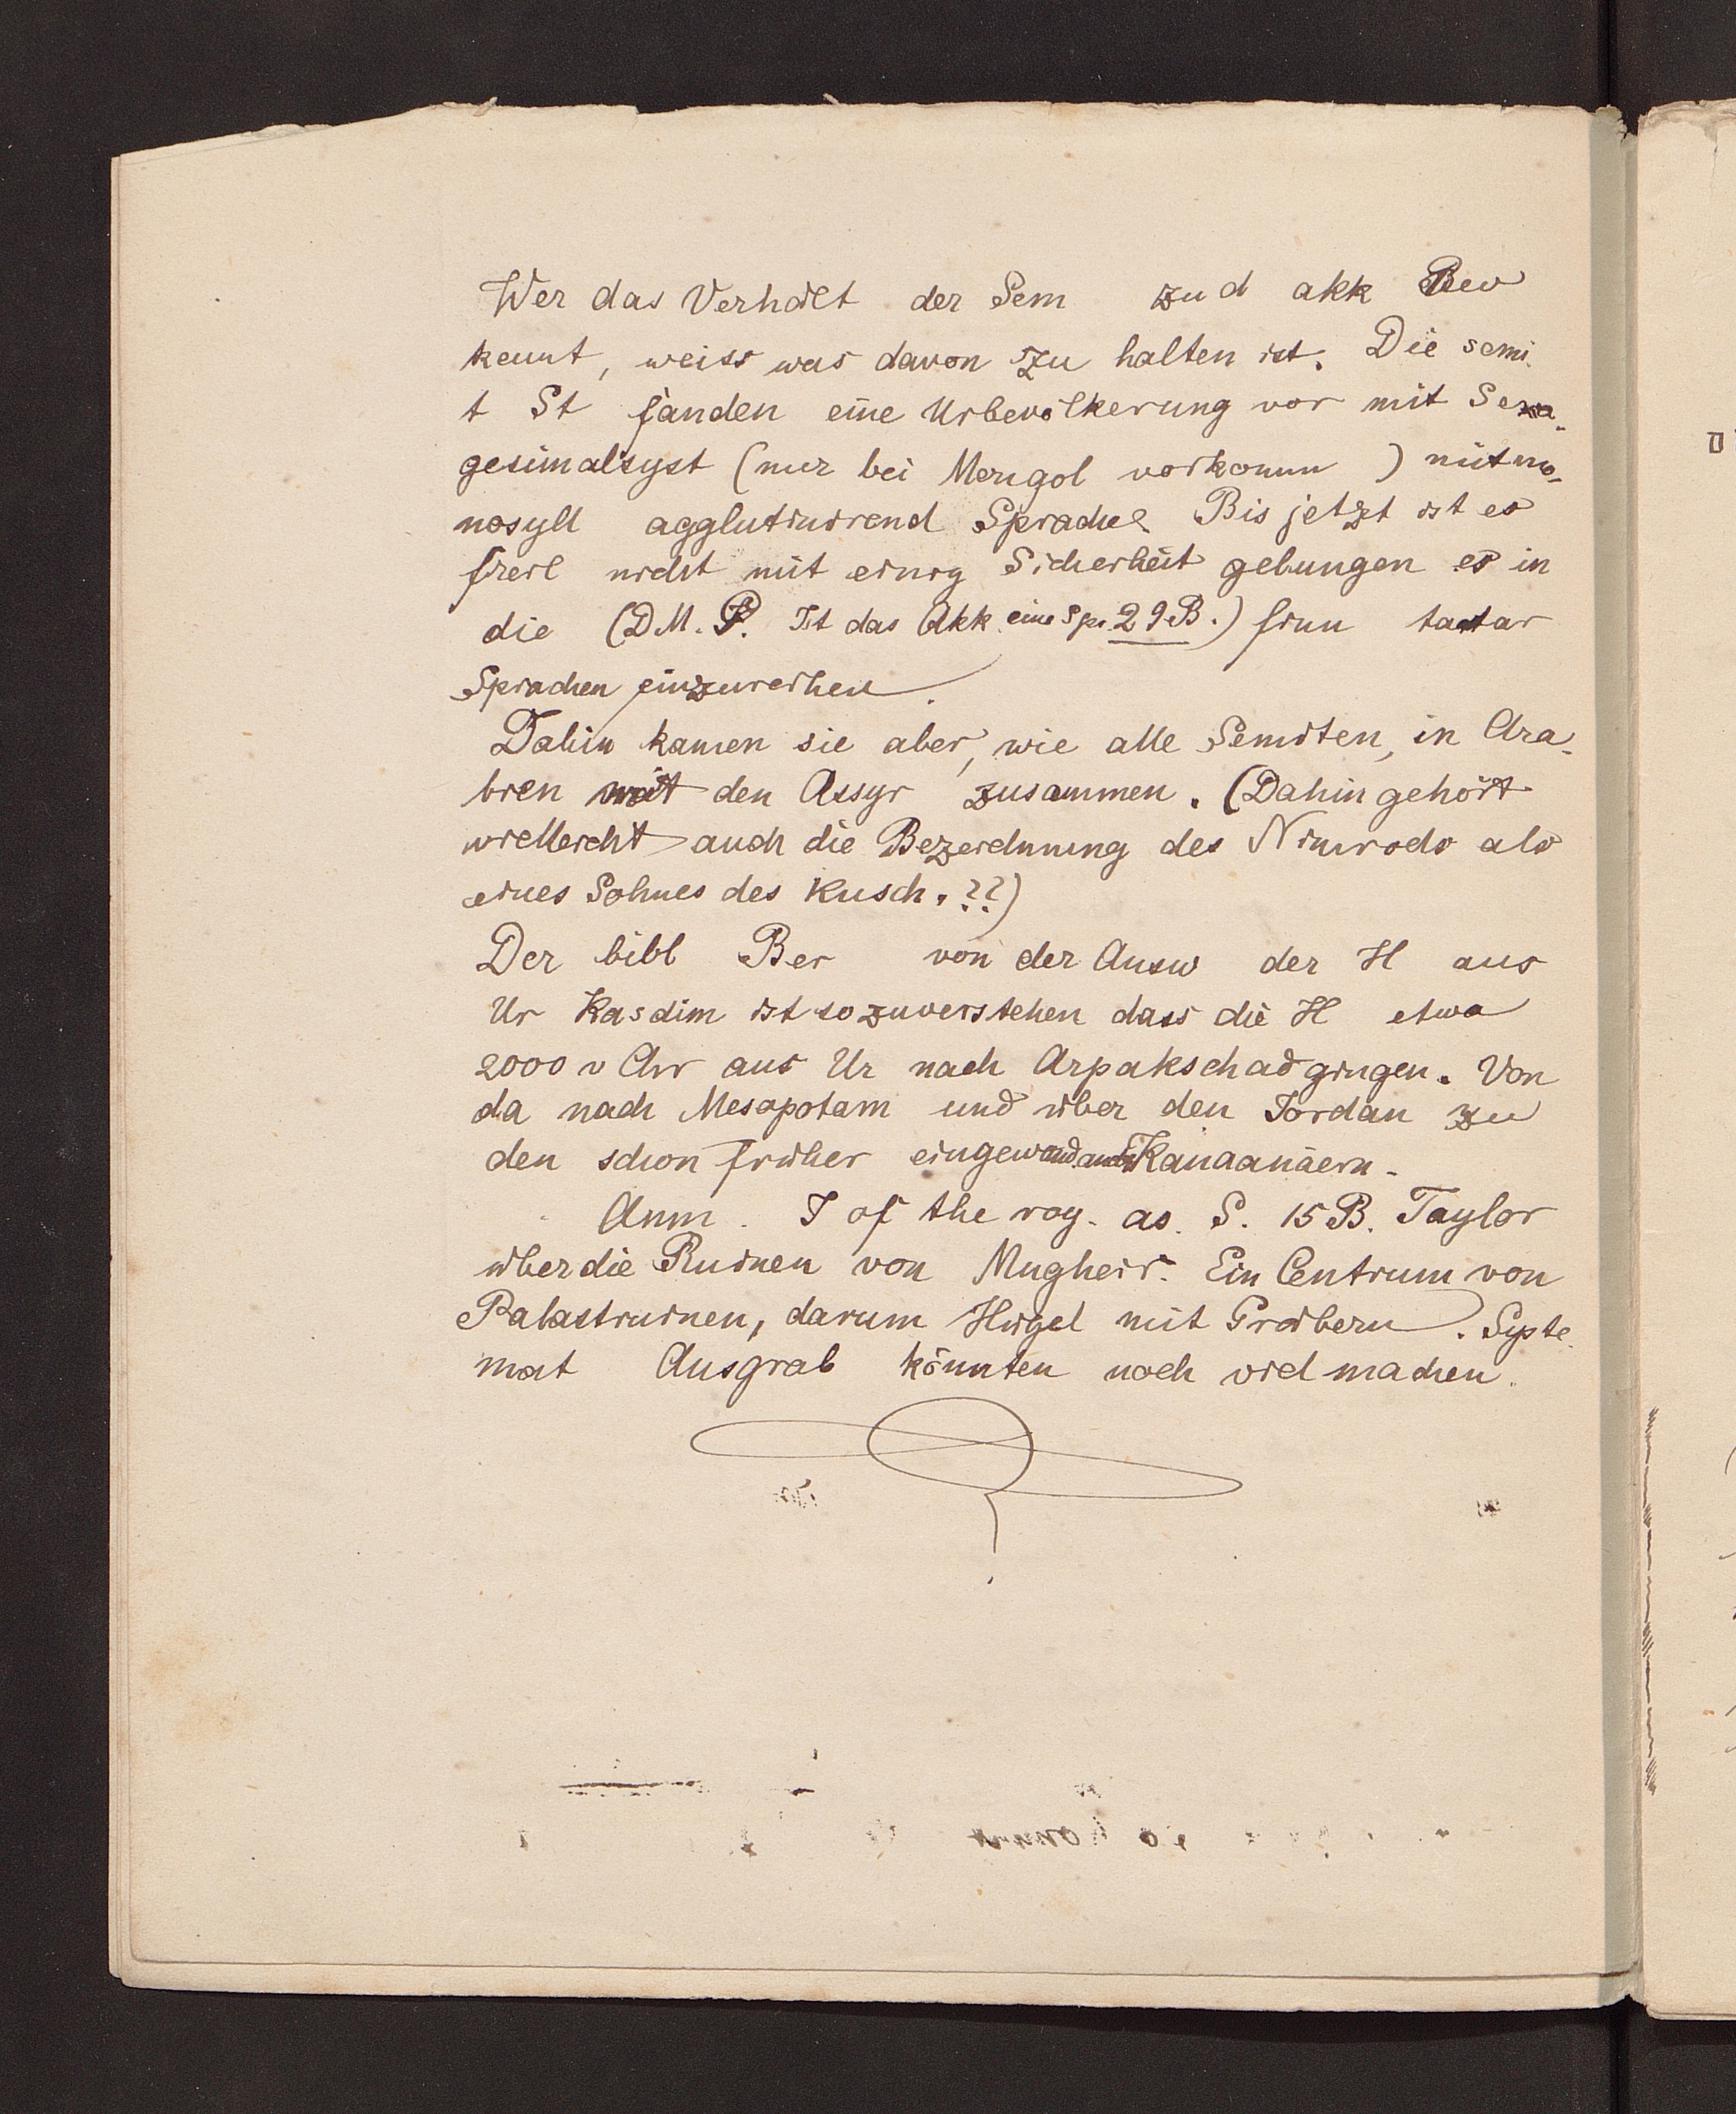 Wer das Verhält der Sem zu d akk Bev
kennt, weiss was davon zu halten ist. Die semi
t St fanden eine Urbevölkerung vor mit Sexa-
gesimalsyst (nur bei Mongol vorkomm ) mit mo-
nosyll agglutinirend Sprache Bis jetzt ist es
freil nicht mit einig Sicherheit gelungen es in
die (DM. P. Ist das Akk eine Spr. 29B.) finn tatar
Sprachen einzureihen.
Dahin kamen sie aber, wie alle Semiten, in Ara-
bien mit den Assyr zusammen. (Dahin gehört
vielleicht auch die Bezeichnung des Nimrods als
eines Sohnes des Kusch. ??)
Der bibl Ber von der Ausw der H aus
Ur Kasdim ist so zuverstehen dass die H etwa
2000 v Chr aus Ur nach Arpakschad gingen. Von
da nach Mesopotam und über den Jordan zu
den schon früher eingewand. Kanaanäern.
Anm. J of the roy. as. S. 15 B. Taylor
über die Ruinen von Mugheir. Ein Centrum von
Palastruinen, darum Hügel mit Gräbern. Syste
mat Ausgrab könnten noch viel machen.